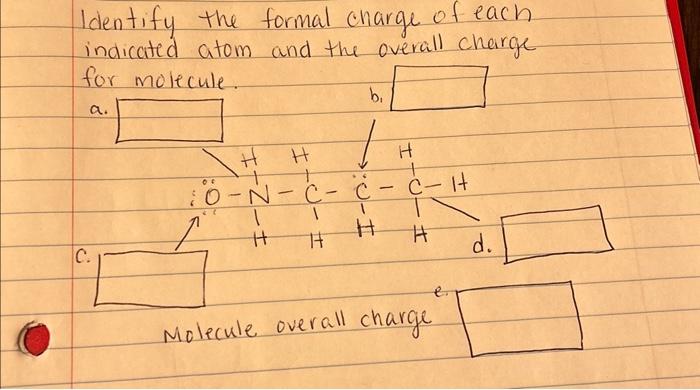 Identify the formal charge of each
indicated atom and the overall charge
for molecule.
a.
b.
H H H
:Ö-N-C-C̈-C-H
H H H H
c.
d.
e.
Molecule overall charge